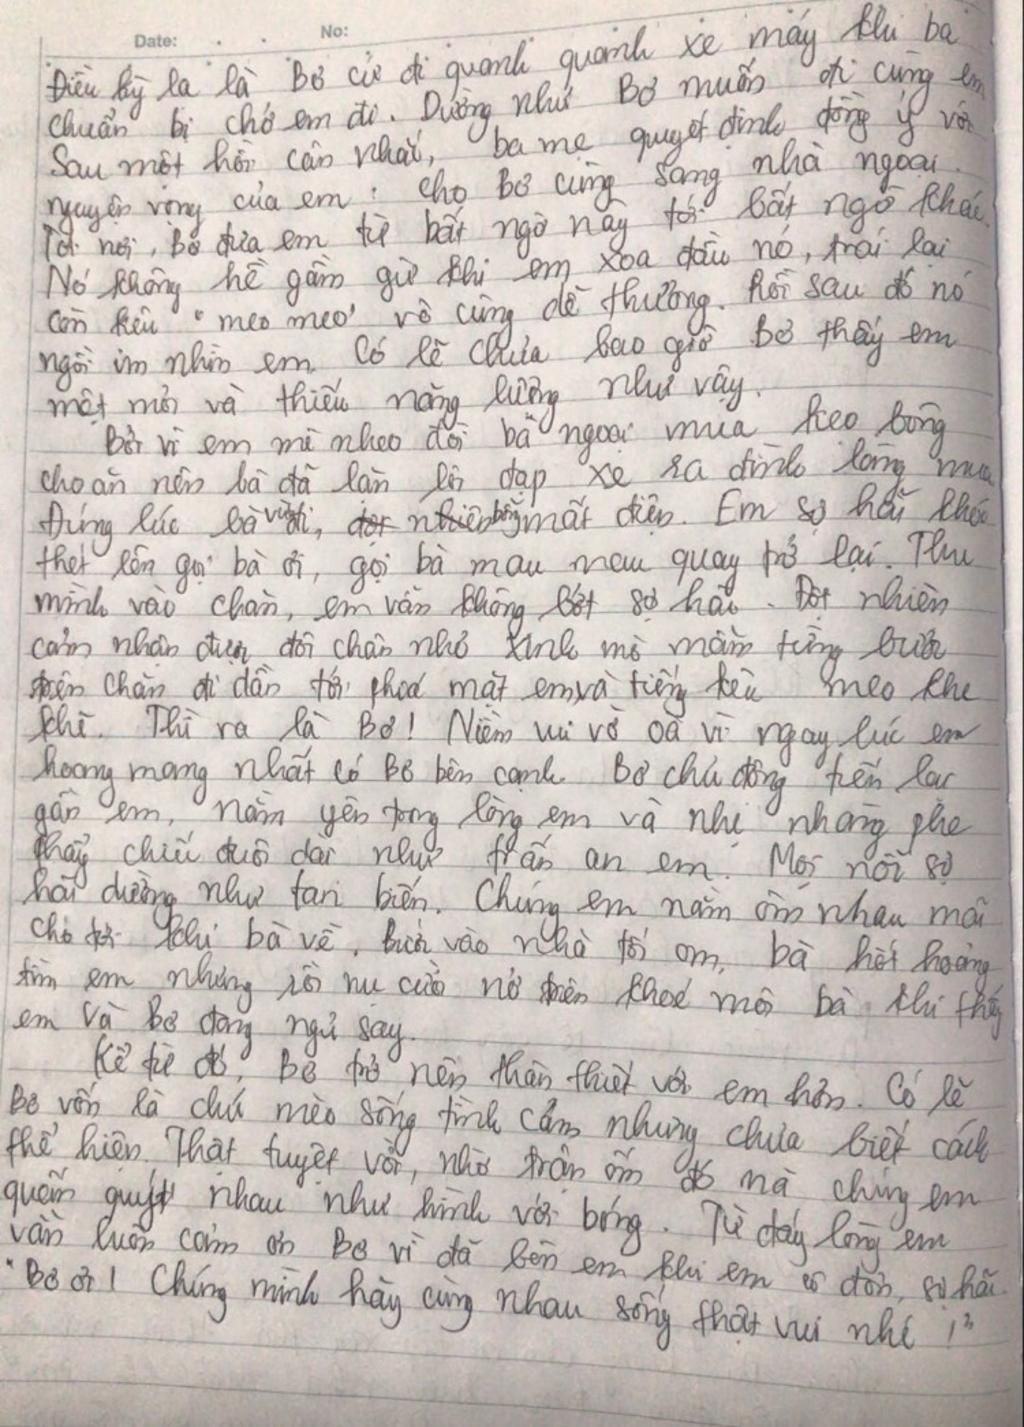 Date: No:
Điều kỳ lạ là Bơ cứ đi quanh quanh xe máy khi ba
chuẩn bị chở em đi. Dường như Bơ muốn đi cùng em
Sau một hồi cân nhắc, ba mẹ quyết định đồng ý với
nguyện vọng của em: cho Bơ cùng sang nhà ngoại.
Tới nơi, Bơ đưa em từ bất ngờ này tới bất ngờ khác.
Nó không hề gầm gừ khi em xoa đầu nó, trái lại
còn kêu "meo meo" vô cùng dễ thương. Rồi sau đó nó
ngồi im nhìn em. Có lẽ chưa bao giờ Bơ thấy em
mệt mỏi và thiếu năng lượng như vậy.
Bởi vì em mè nheo đòi bà ngoại mua kẹo bông
cho ăn nên bà đã lặn lội đạp xe ra đình làng mua
Đúng lúc bà vừa đi, đột nhiên bỗng mất điện. Em sợ hãi khóc
thét lên gọi bà ơi, gọi bà mau mau quay trở lại. Thu
mình vào chăn, em vẫn không bớt sợ hãi. Đột nhiên
cảm nhận được đôi chân nhỏ xinh mò mẫm từng bước
trên chăn đi dần tới phía mặt em, và tiếng kêu meo khe
khẽ. Thì ra là Bơ! Niềm vui vỡ oà vì ngay lúc em
hoang mang nhất có Bơ bên cạnh. Bơ chủ động tiến lại
gần em, nằm yên trong lòng em và nhẹ nhàng phe
phẩy chiếc đuôi dài như trấn an em. Mọi nỗi sợ
hãi dường như tan biến. Chúng em nằm ôm nhau mãi
cho tới khi bà về. Bước vào nhà tối om, bà hốt hoảng
tìm em nhưng rồi nụ cười nở trên khoé môi bà khi thấy
em và Bơ đang ngủ say.
Kể từ đó, Bơ trở nên thân thiết với em hơn. Có lẽ
Bơ vốn là chú mèo sống tình cảm nhưng chưa biết cách
thể hiện. Thật tuyệt vời, nhờ trận ốm đó mà chúng em
quấn quýt nhau như hình với bóng. Từ đáy lòng em
vẫn luôn cảm ơn Bơ vì đã bên em khi em cô đơn, sợ hãi.
"Bơ ơi! Chúng mình hãy cùng nhau sống thật vui nhé!"